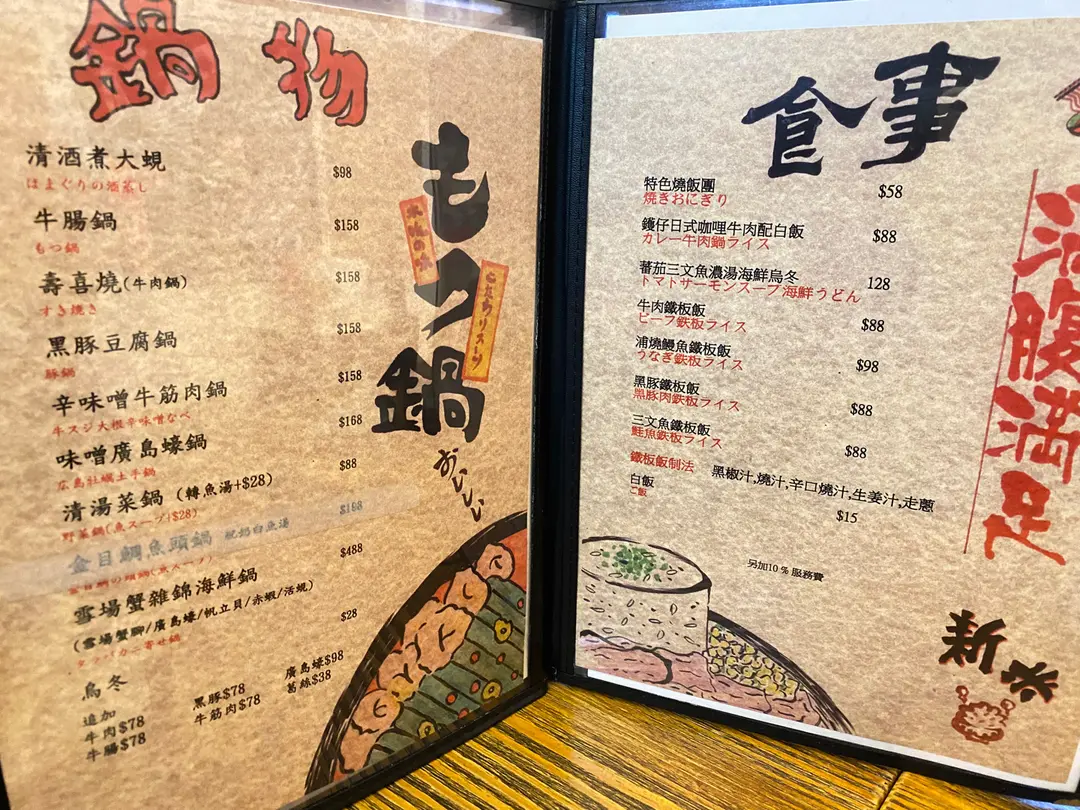 鍋物
清酒煮大蜆 $98
はまぐりの酒蒸し
牛腸鍋 $158
もつ鍋
壽喜燒(牛肉鍋) $158
すき焼き
黑豚豆腐鍋 $158
豚鍋
辛味噌牛筋肉鍋 $158
牛スジ大根辛味噌なべ
味噌廣島蠔鍋 $168
広島牡蠣土手鍋
清湯菜鍋 (轉魚湯+$28) $88
野菜鍋(魚スープ+$28)
金目鯛魚頭鍋
雪場蟹雜錦海鮮鍋 $488
(雪場蟹腳/廣島蠔/帆立貝/赤蝦/活蜆)
タラバカニ寄せ鍋
烏冬 $28
追加
牛肉$78
牛腸$78
黑豚$78
牛筋肉$78
廣島蠔$98
葛絲$38
もつ鍋
おいしい
食事
特色燒飯團 $58
焼きおにぎり
鑊仔日式咖哩牛肉配白飯 $88
カレー牛肉鍋ライス
蕃茄三文魚濃湯海鮮烏冬 128
トマトサーモンスープ海鮮うどん
牛肉鐵板飯 $88
ビーフ鉄板ライス
浦燒鰻魚鐵板飯 $98
うなぎ鉄板ライス
黑豚鐵板飯 $88
黑豚肉鉄板ライス
三文魚鐵板飯 $88
鮭魚鉄板ライス
鐵板飯制法 黑椒汁,燒汁,辛口燒汁,生姜汁,走蔥
白飯 $15
ご飯
另加10％服務費
満腹満足
新米